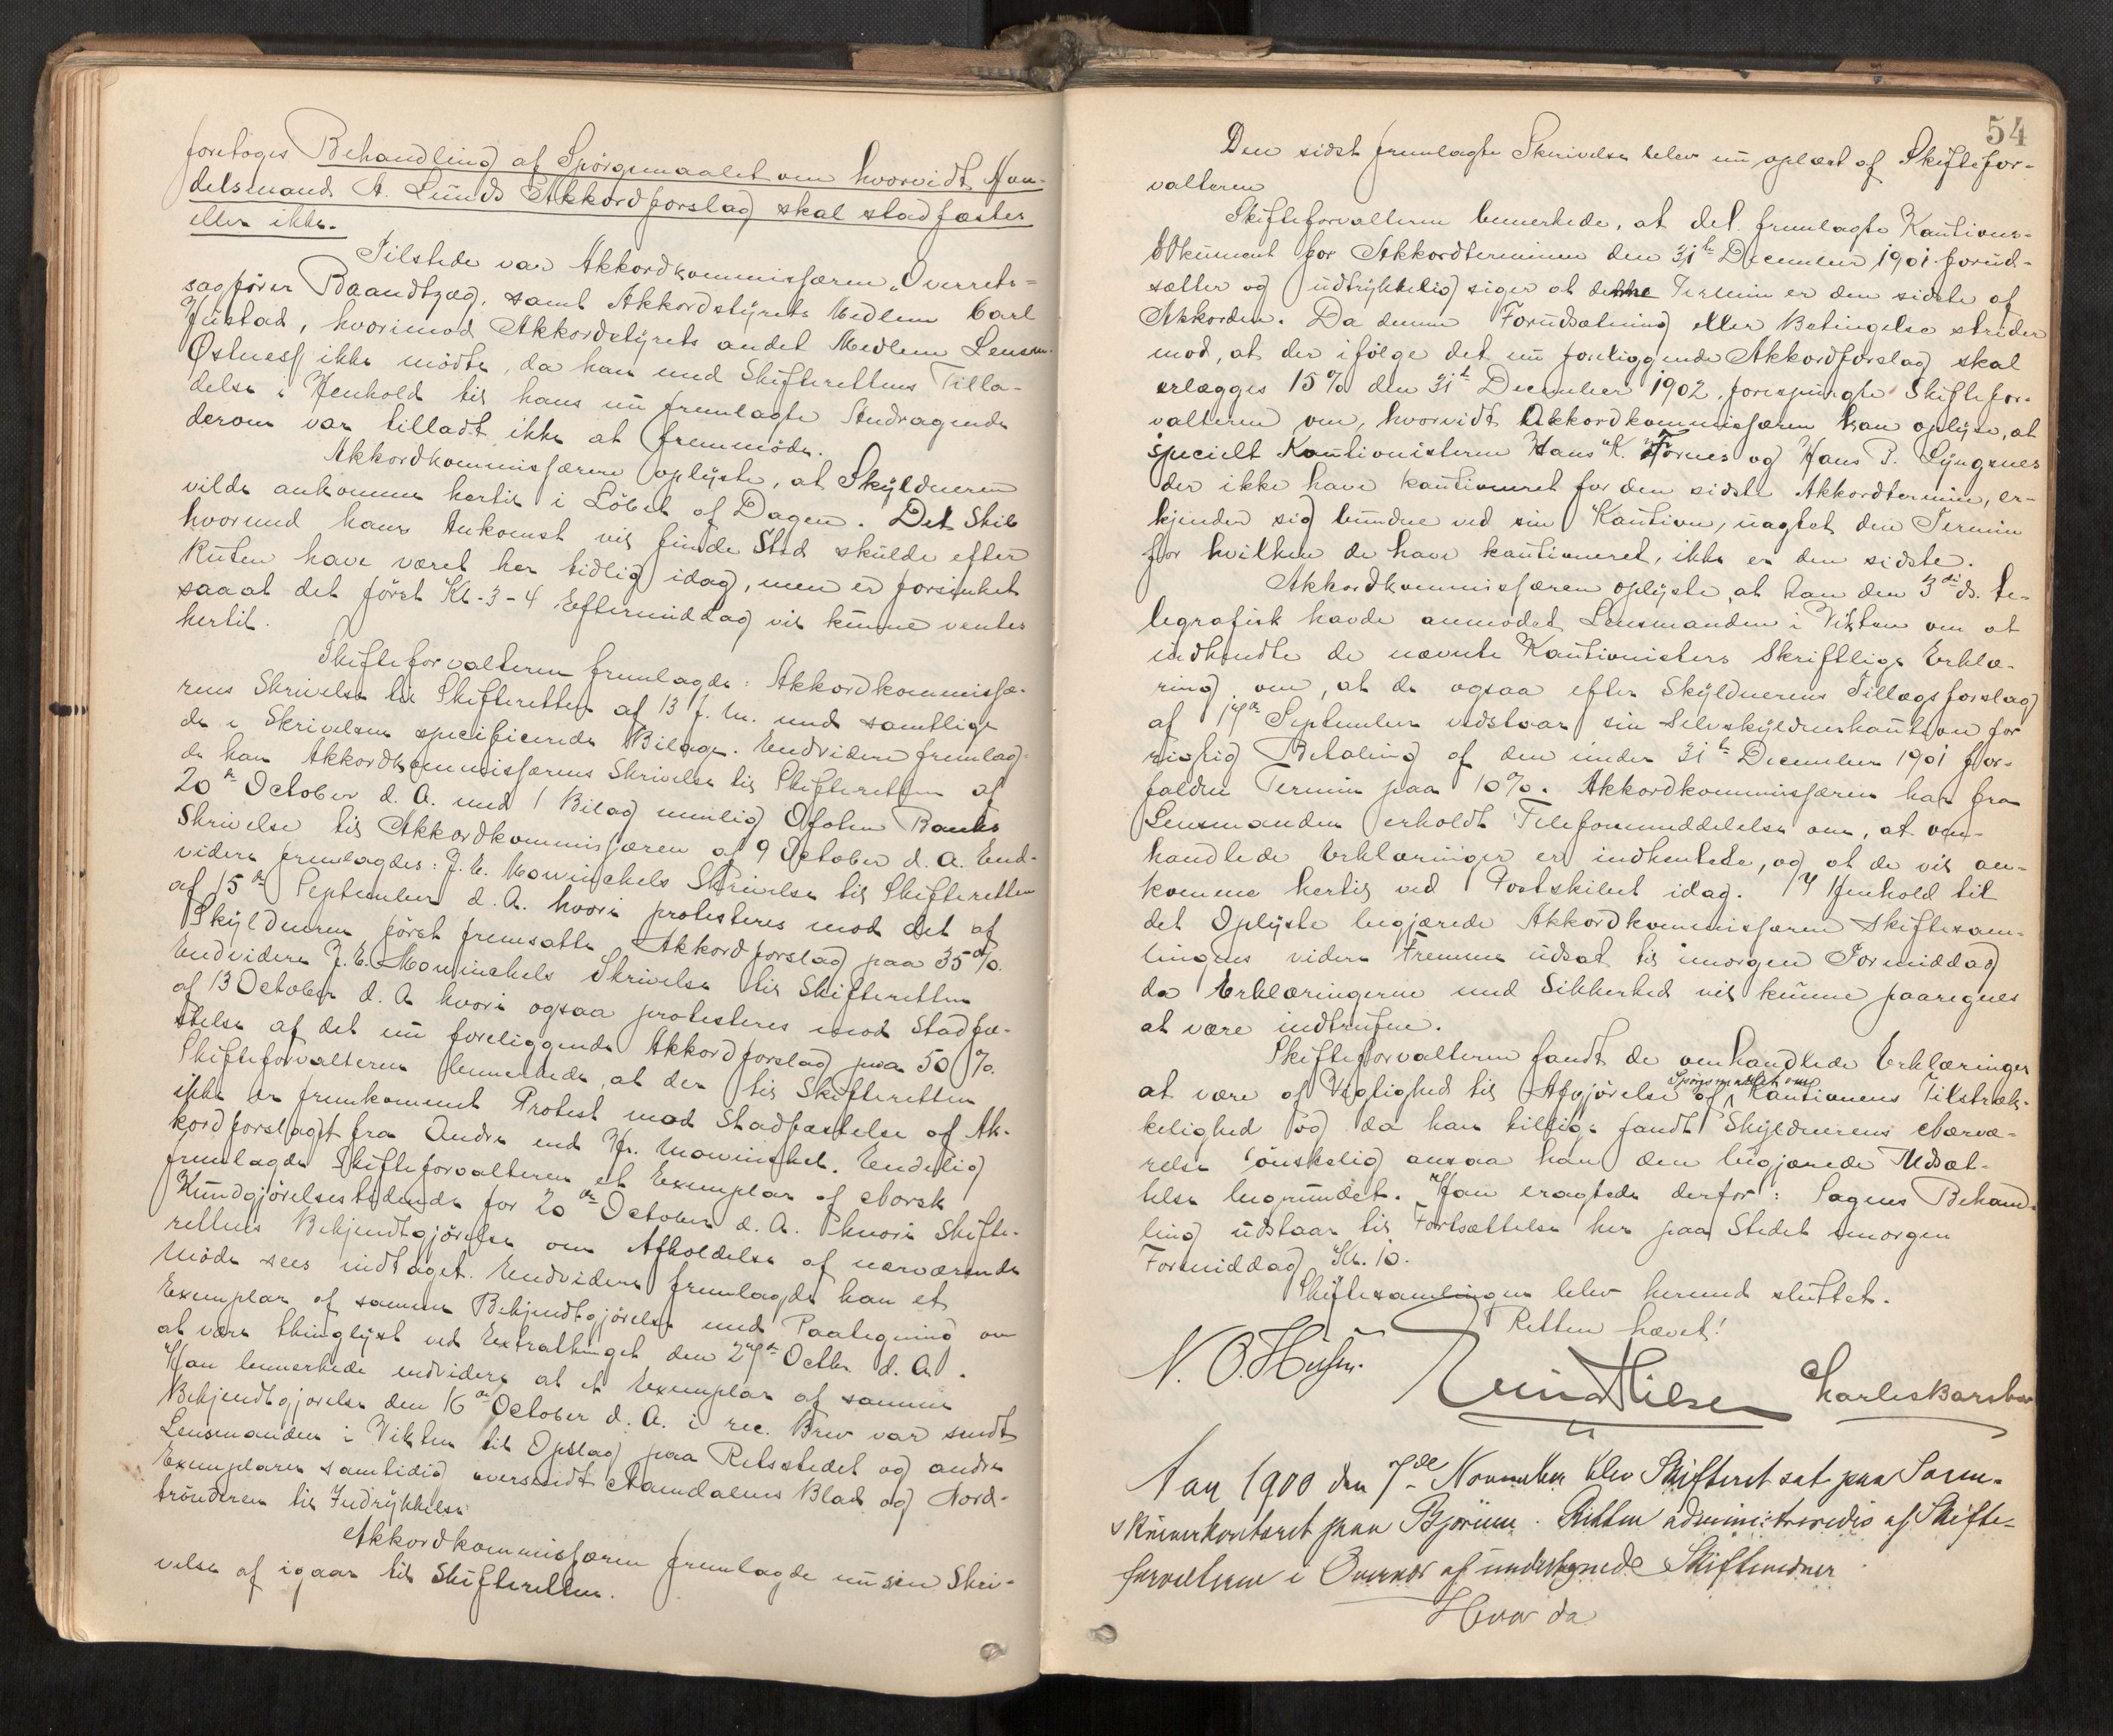 foretoges Behandling af Spörgsmaalet om hvorvidt Han-
delsmand A. Lunds Akkordforslag skal stadfæstes
eller ikke.
Tilstede var Akkordkommissæren, Overrets-
sagförer Baandtzæg, samt Akkordstyrets Medlem Carl
Justad, hvorimod Akkordstyrets andet Medlem Lensm.
Ostness ikke mödte, da han med Skifterettens Tilla-
delse i Henhold til hans nu fremlagte Andragende
derom var tilladt ikke at fremmöde.
Akkordkommissæren oplyste, at Skyldneren
vilde ankomme hertil i Löbet af Dagen. Det Skib
hvormed hans Ankomst vil finde Sted skulde efter
Ruten have været her tidlig idag, men er forsinket
saaat det först Kl. 3-4 Eftermiddag vil kunne ventes
hertil.
Skifteforvalteren fremlagde: Akkordkommissæ-
rens Skrivelse til Skifteretten af 13 f. M. med samtlige
de i Skrivelsen specificerede Bilage. Endvidere fremlag-
de han Akkordkommissærens Skrivelse til Skifteretten af
20de October d. A. med 1 Bilag nemlig Ofoten Banks
Skrivelse til Akkordkommissæren af 9 October d. A. End-
videre fremlagdes: J. E. Mowinckels Skrivelse til Skifteretten
af 15de September d. A. hvori protesteres mod det af
Skyldneren först fremsatte Akkordforslag paa 35%.
Endvidere J. E. Mowinckels Skrivelse til Skifteretten
af 13 October d. A. hvori ogsaa protesteres mod Stadfæ-
stelse af det nu foreliggende Akkordforslag paa 50%.
Skifteforvalteren bemærkede, at der til Skifteretten
ikke er fremkommet Protest mod Stadfæstelse af Ak-
kordforslaget fra Andre end Hr. Mowinckel. Endelig
fremlagde Skifteforvalteren et Exemplar af Norsk
Kundgjörelsestidende for 20de October d. A. hvori Skifte-
rettens Bekjendtgjörelse om Afholdelse af nærværende
Möde sees indtaget. Endvidere fremlagde han et
Exemplar af samme Bekjendtgjörelse med Paategning om
at være thinglyst ved Extrathinget den 27de Octbr d. A.
Han bemærkede endvidere at et Exemplar af samme
Bekjendtgjörelse den 16de October d. A. i rec. Brev var sendt
Lensmanden i Vikten til Opslag paa Retsstedet og andre
Exemplarer samtidig oversendt Namdalens Blad og Nord-
trönderen til Indrykkelse.
Akkordkommissæren fremlagde nu sin Skri-
velse af igaar til Skifteretten.
54
Den sidst fremlagte Skrivelse blev nu oplæst af Skiftefor-
valteren
Skifteforvalteren bemerkede, at det fremlagte Kautions-
dokument for Akkordterminen den 31te December 1901 forud-
sætter og udtrykkelig siger at denne Termin er den sidste af
Akkorden. Da denne Forudsætning eller Betingelse strider
mod, at der ifölge det nu foreliggende Akkordforslag skal
erlægges 15% den 31te December 1902, forespurgte Skiftefor-
valteren om, hvorvidt Akkordkommissæren kan oplyse, at
specielt Kautionisterne Hans K. Fornes og Hans P. Lyngsnes
der ikke have kautioneret for den sidste Akkordtermin, er-
kjender sig bundne ved sin Kaution, uagtet den Termin
for hvilken de have kautioneret, ikke er den sidste.
Akkordkommissæren oplyste, at han den 3die ds. te-
legrafisk havde anmodet Lensmanden i Vikten om at
indhendte de nævnte Kautionisters skriftlige Erklæ-
ring om, at de ogsaa efter Skyldnerens Tillægsforslag
af 17de September vedstaar sin Selvskyldnerkaution for
rigtig Betaling af den under 31te December 1901 for-
faldne Termin paa 10%. Akkordkommissæren har fra
Lensmanden erholdt Telefonmeddelelse om, at om-
handlede Erklæringer er indhentede, og at de vil an-
komme hertil ved Postskibet idag. I Henhold til
det Oplyste begjærede Akkordkommissæren Skiftesam-
lingens videre Fremme udsat til imorgen Formiddag
da Erklæringerne med Sikkerhed vil kunne paaregnes
at være indtrufne.
Skifteforvalteren fandt de omhandlede Erklæringer
at være af Vigtighed til Afgjörelse af Spörgsmaalet om Kautionens Tilstræk-
kelighed og da han tillige fandt Skyldnerens Nærvæ-
relse önskelig ansaa han den begjærede Udsæt-
telse begrundet. Han eragtede derfor: Sagens Behand-
ling udstaar til Fortsættelse her paa Stedet imorgen
Formiddag Kl. 10.
Skiftesamlingen blev hermed sluttet.
Retten hævet!
N. O. Charles Barsboe
Aar 1900 den 7de November blev Skifteret sat paa Soren-
skriverkontoret paa Bjorum. Retten administreredes af Skifte-
forvalteren i Overvær af undertegnede Skiftevidner
Hvor da